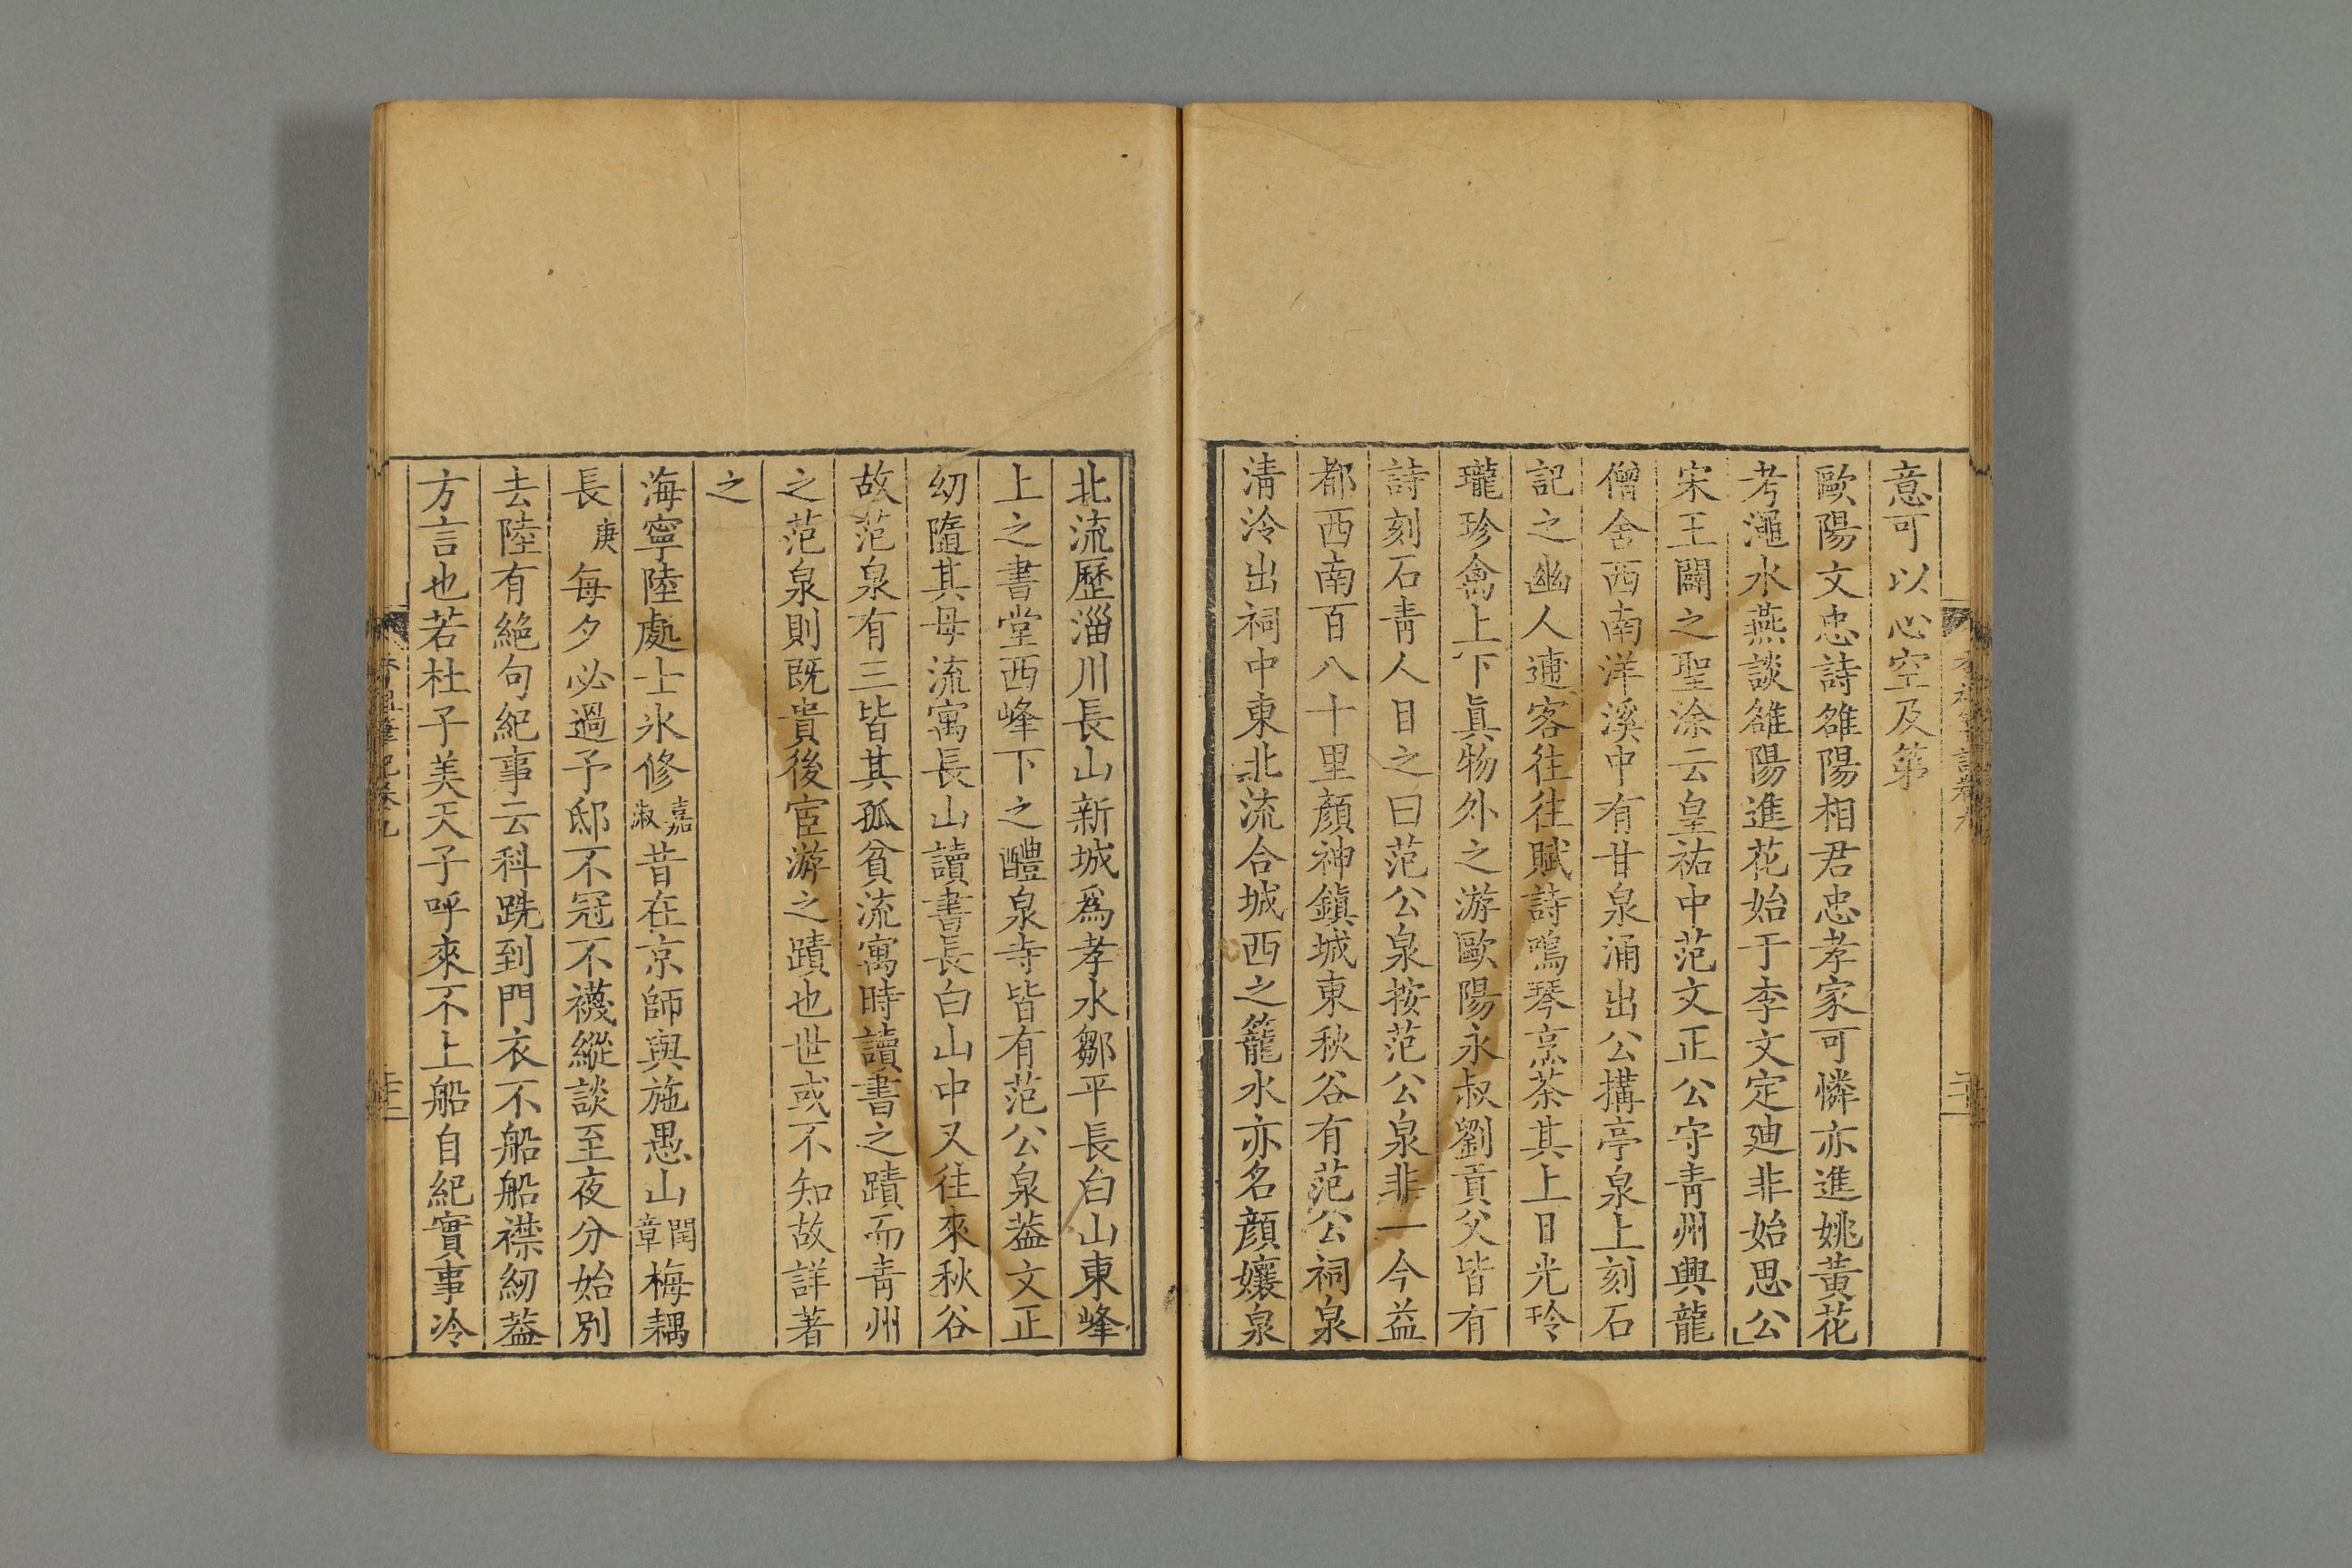 意可以心空及第
歐陽文忠詩雒陽相君忠孝家可憐亦進姚黃花
考澠水燕談雒陽進花始于李文定廸非始思公
宋王闢之聖涂云皇祐中范文正公守青州興龍
僧舍西南洋溪中有甘泉涌出公搆亭泉上刻石
記之幽人逋客往往賦詩鳴琴烹茶其上日光玲
瓏珍禽上下眞物外之游歐陽永叔劉貢父皆有
詩刻石青人目之曰范公泉按范公泉非一今益
都西南百八十里顏神鎭城東秋谷有范公祠泉
清泠出祠中東北流合城西之籠水亦名顏孃泉
北流歷淄川長山新城爲孝水鄒平長白山東峰
上之書堂西峰下之醴泉寺皆有范公泉葢文正
幼隨其母流寓長山讀書長白山中又往來秋谷
故范泉有三皆其孤貧流寓時讀書之蹟而青州
之范泉則旣貴後宦游之蹟也世或不知故詳著
之
海寧陸處士氷修嘉淑昔在京師與施愚山閏章梅耦
長庚每夕必過予邸不冠不襪縱談至夜分始別
去陸有絶句紀事云科跣到門衣不船船襟紉葢
方言也若杜子美天子呼來不上船自紀實事冷
香祖筆記卷九